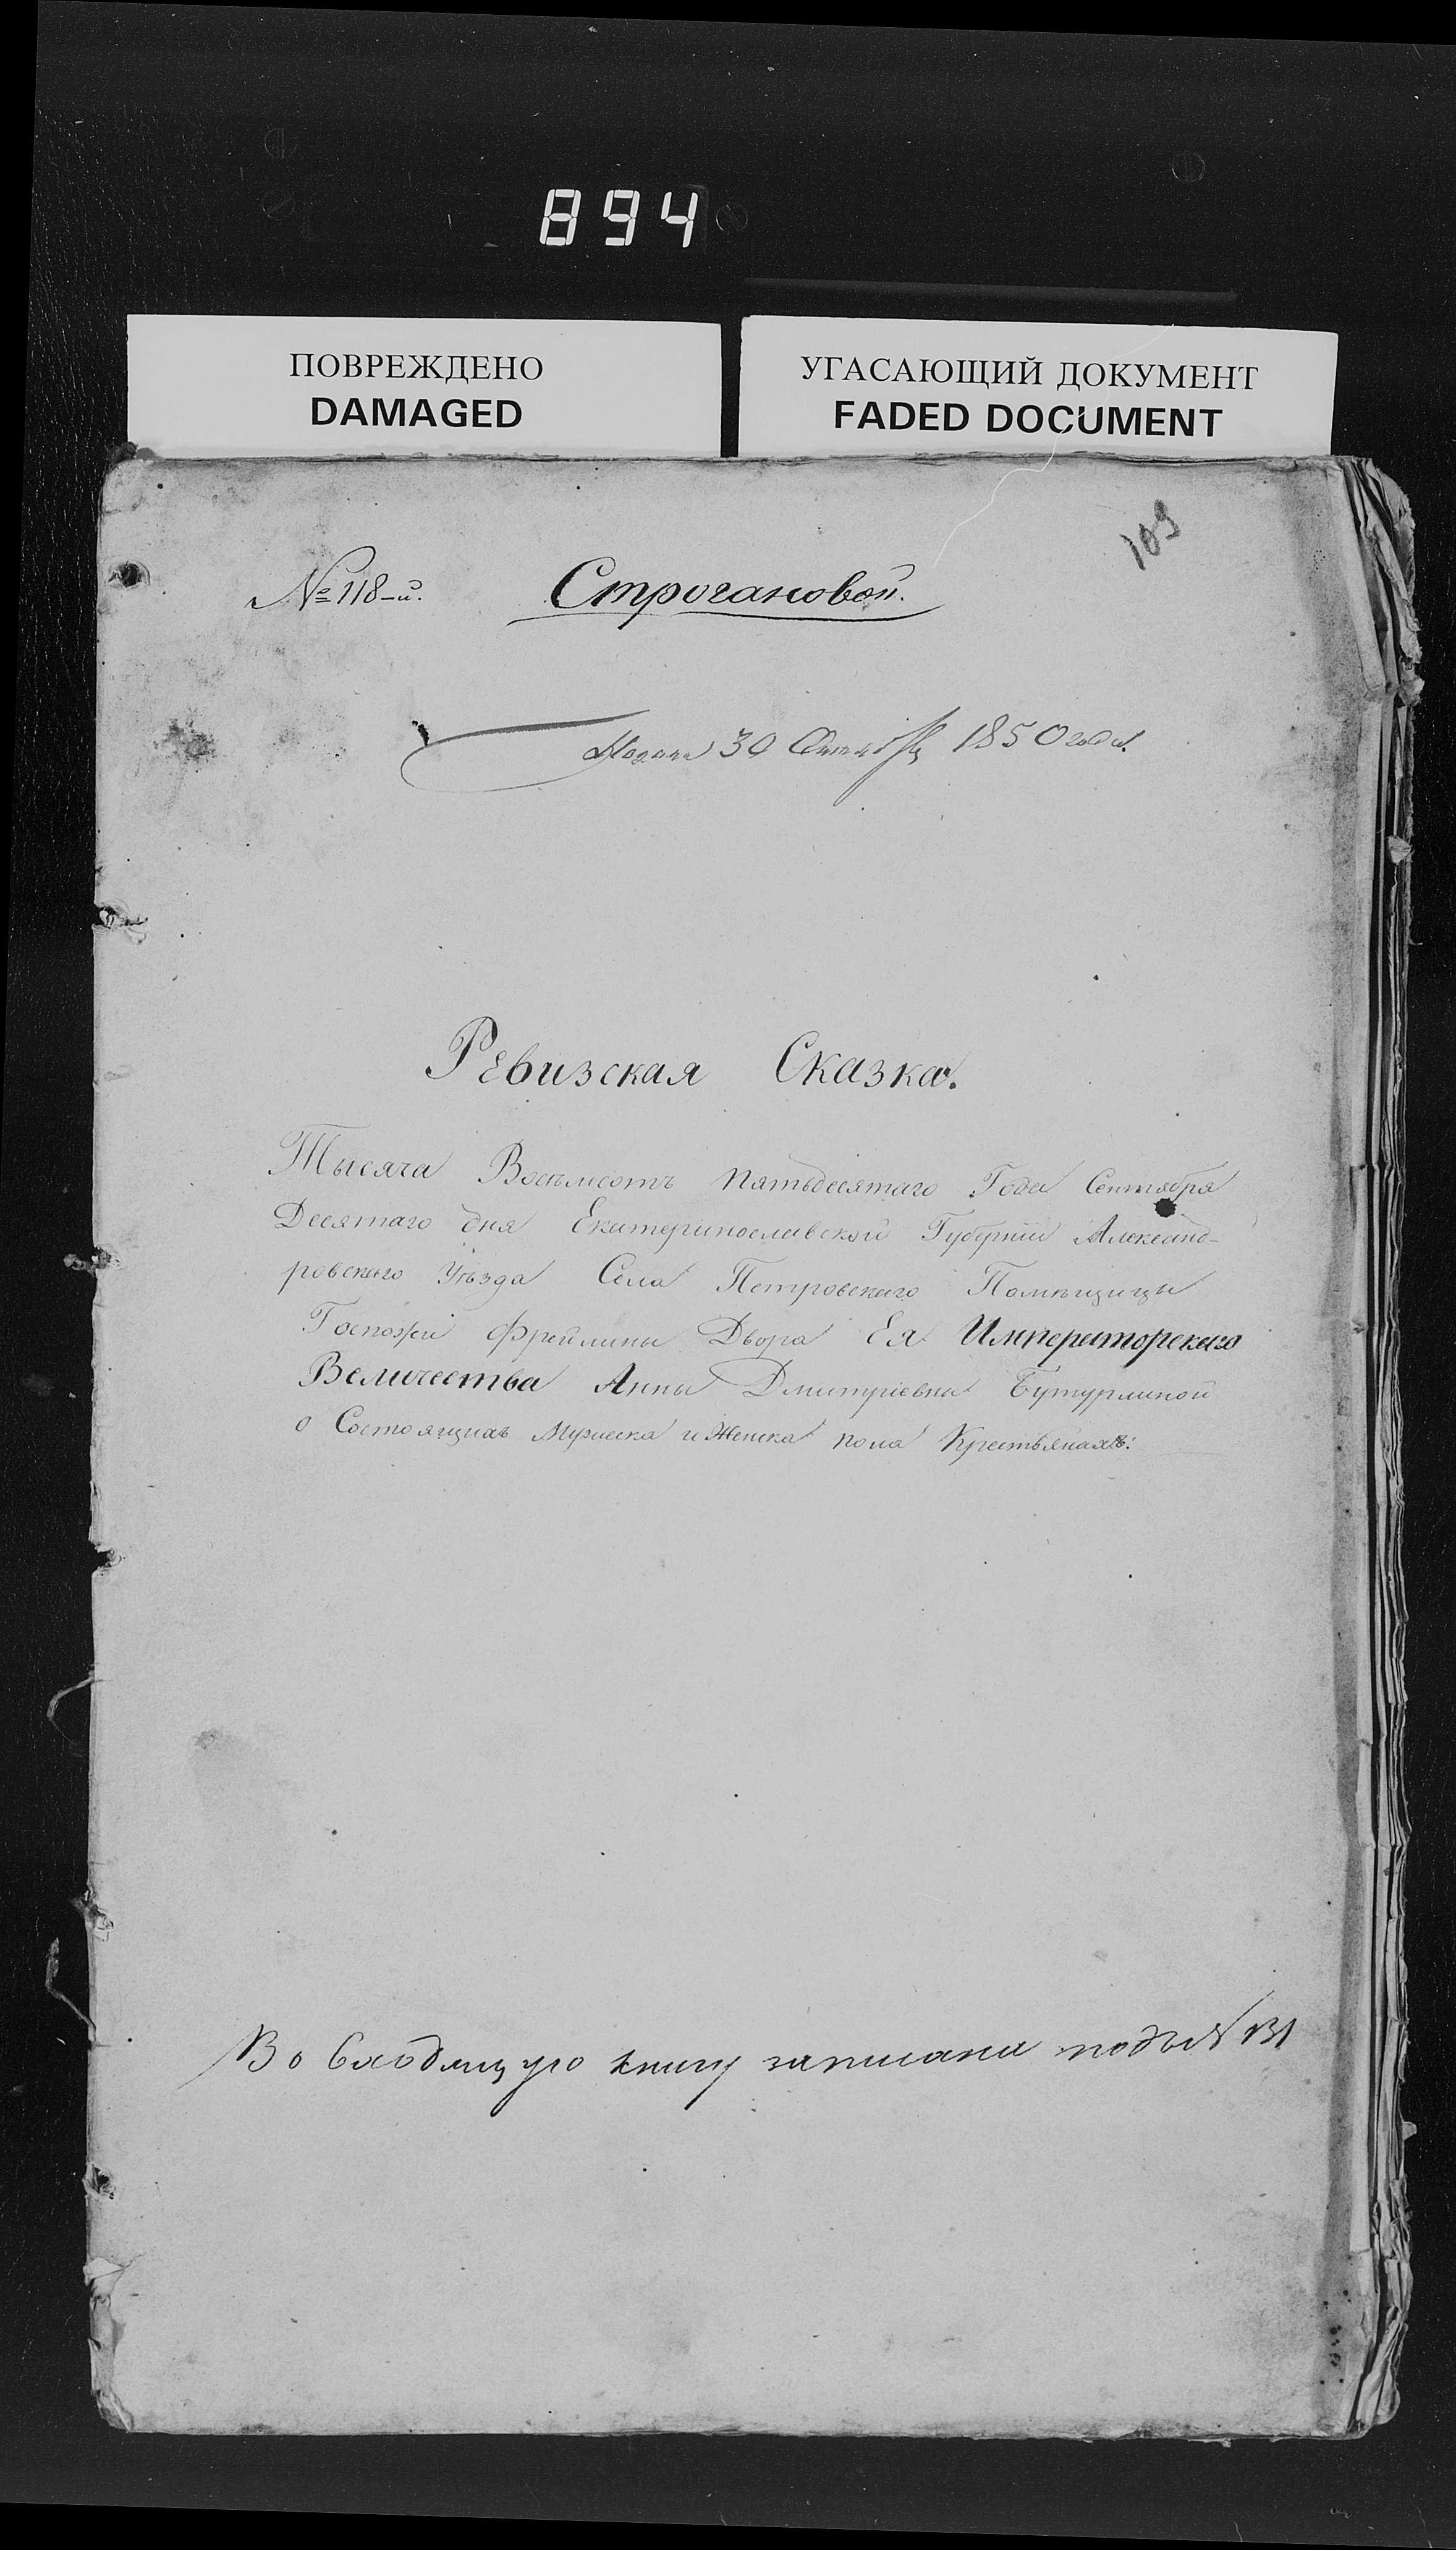 894
ПОВРЕЖДЕНО
DAMAGED
УГАСАЮЩИЙ ДОКУМЕНТ
FADED DOCUMENT
109
№ 118-й.
Строгановой.
Подана 30 Октября 1850 года.
Ревизская Сказка.
Тысяча Восемьсотъ пятьдесятаго Года Сентября
Десятаго дня Екатеринославской Губерніи Александ-
ровскаго Уѣзда Села Петровскаго Помѣщицы
Госпожи Фрейлины Двора Ея Императорскаго
Величества Анны Дмитріевны Бутурлиной
о Состоящихъ Мужеска и Женска пола Крестьянахъ:
Во входящую книгу записана подъ № 131